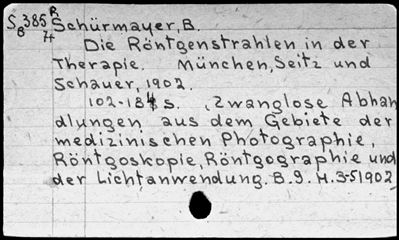 S 385 R Schürmayer, B.
B 74
Die Röntgenstrahlen in der
Therapie. München, Seitz und
Schauer, 1902.
102-184 s. , Zwanglose Abhan
dlungen aus dem Gebiete der
medizinischen Photographie,
Röntgoskopie, Röntgographie und
der Lichtanwendung. B. 9. H. 3-5 1902